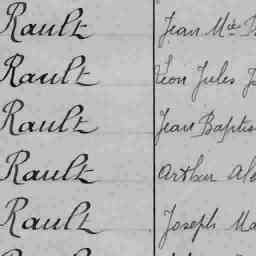 Rault Jean Mie
Rault Léon Jules
Rault Jean Baptis
Rault Arthur Ale
Rault Joseph Ma